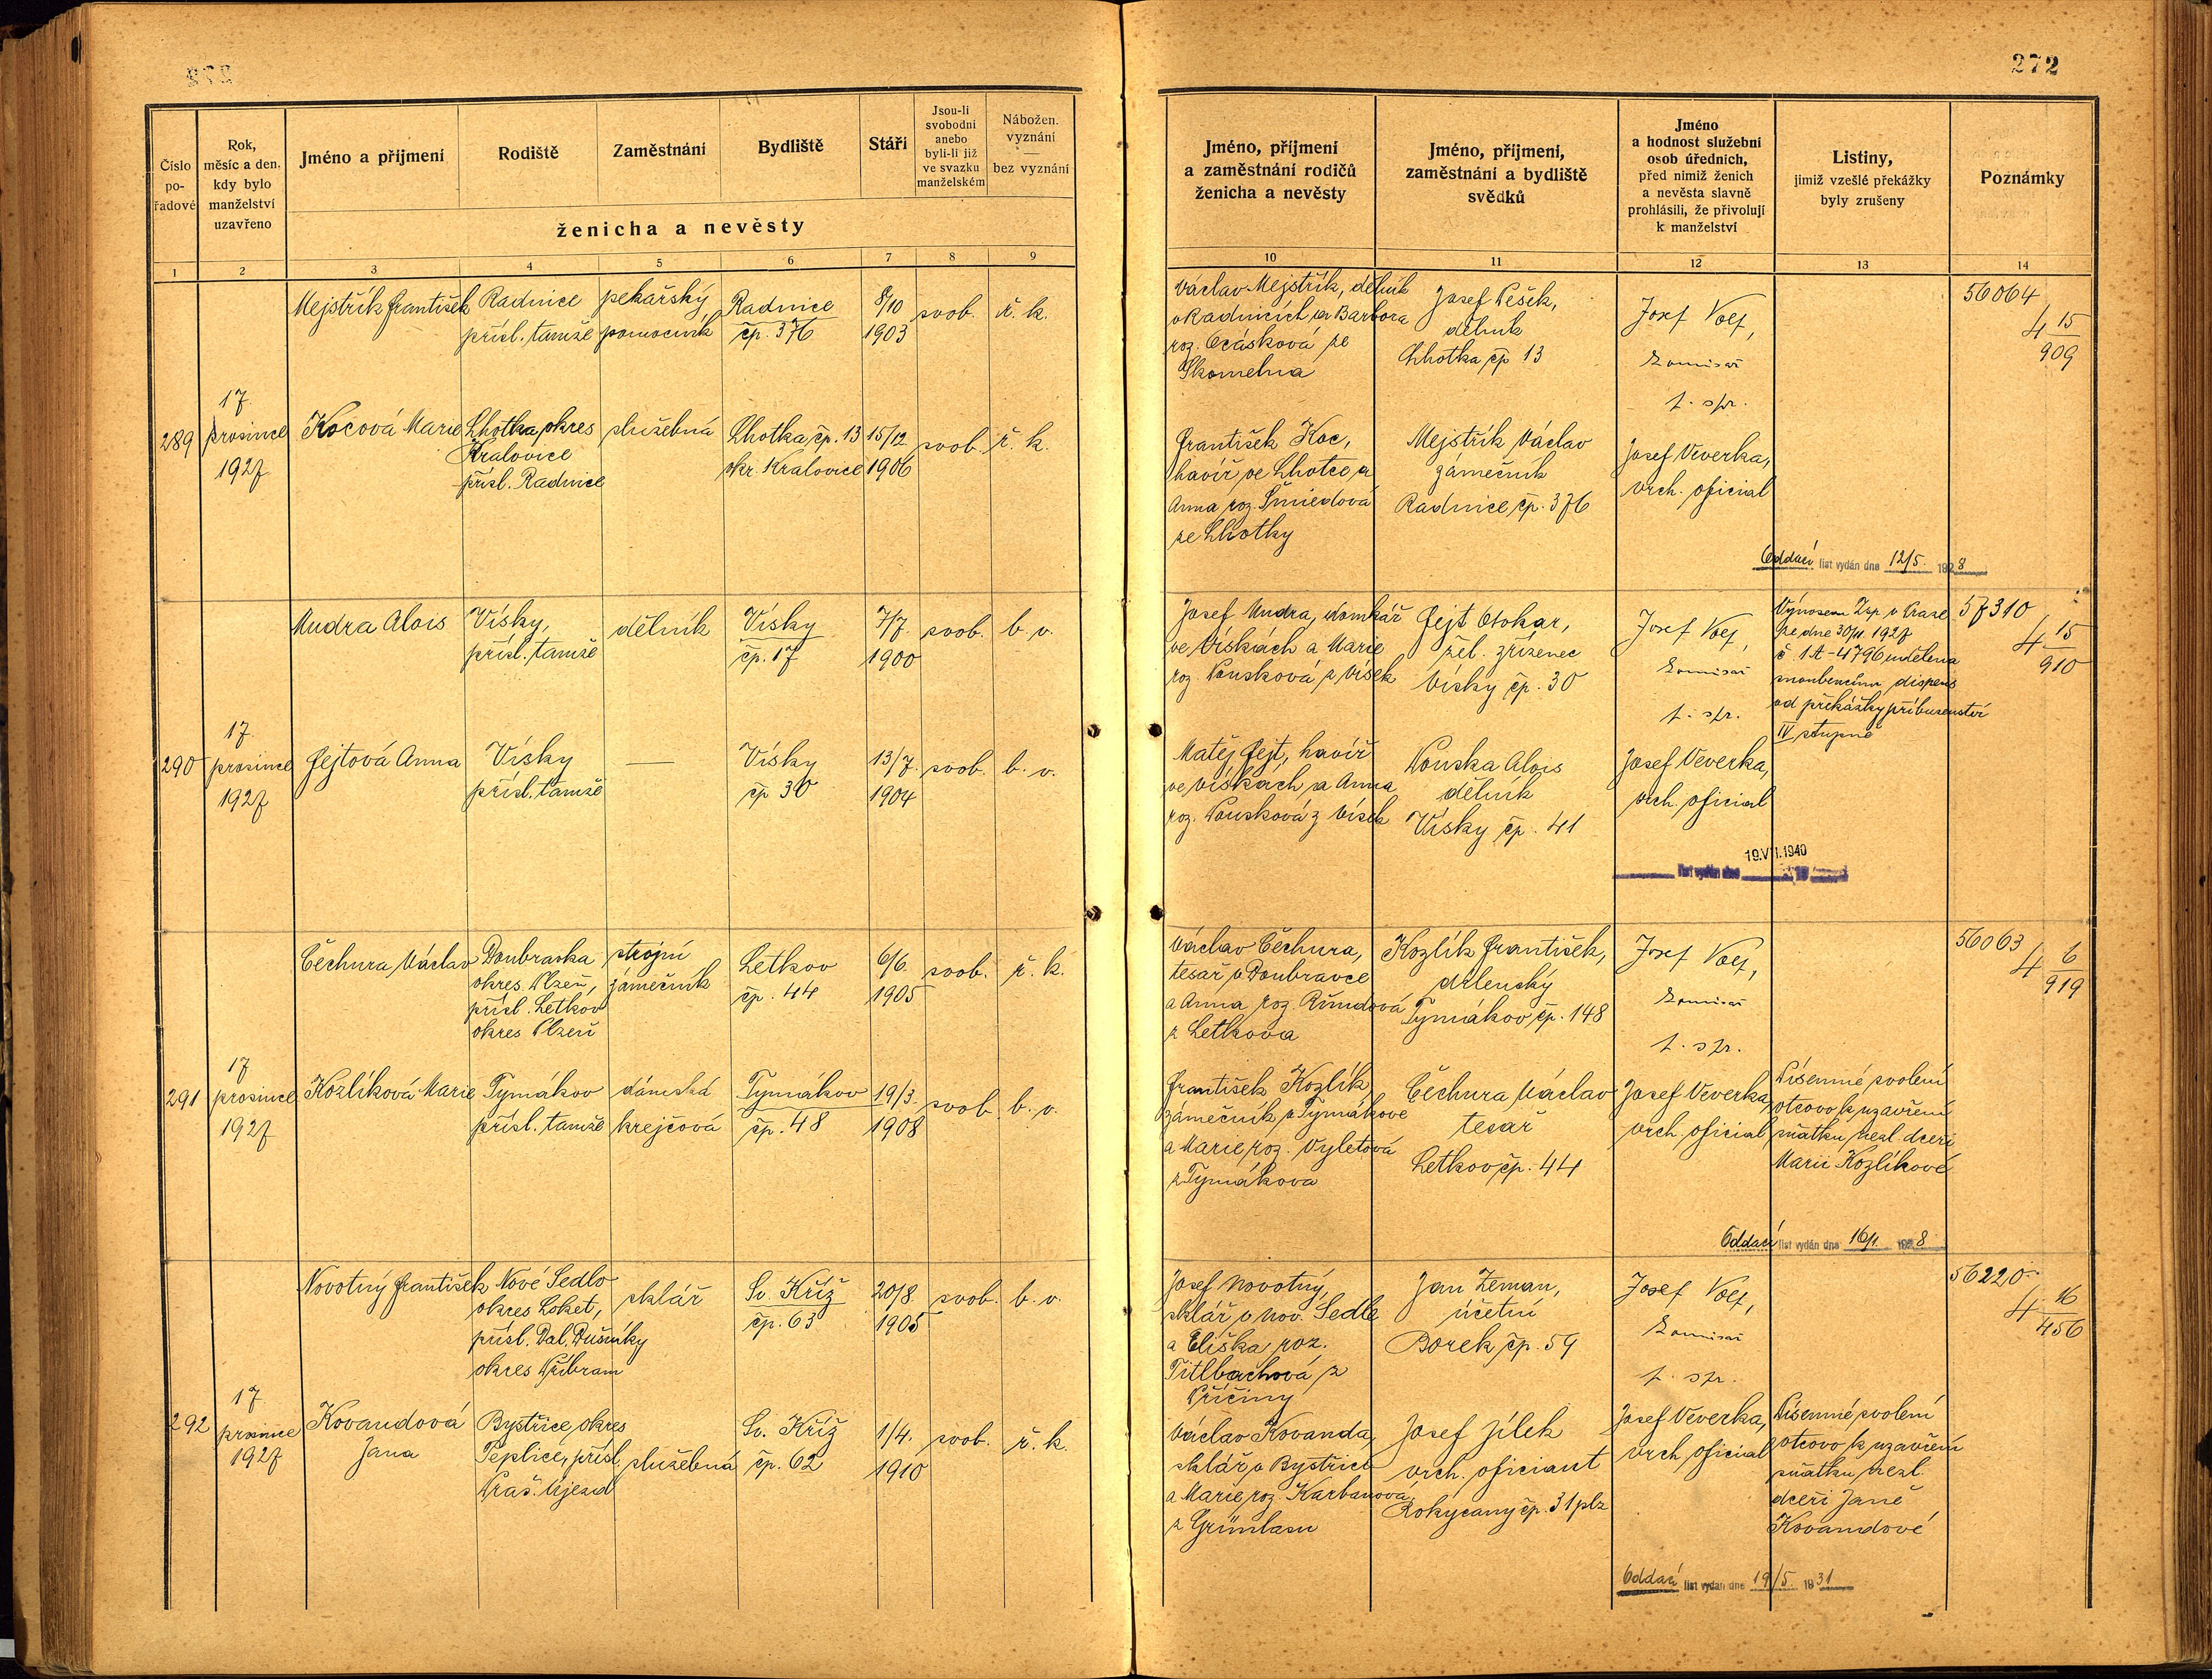 272
Číslo pořadové
Rok, měsíc a den, kdy bylo manželství uzavřeno
Jméno a příjmení
Rodiště
Zaměstnání
Bydliště
Stáří
Jsou-li svobodni anebo byli-li již ve svazku manželském
Nábožen. vyznání
bez vyznání
ženicha a nevěsty
Jméno, příjmení a zaměstnání rodičů ženicha a nevěsty
Jméno, příjmení, zaměstnání a bydliště svědků
Jméno a hodnost služební osob úředních, před nimiž ženich a nevěsta slavně prohlásili, že přivolují k manželství
Listiny, jimiž vzešlé překážky byly zrušeny
Poznámky
1 2 3 4 5 6 7 8 9 10 11 12 13 14
289
17.
prosince
1927
Mejstřík František
Radnice
přísl. tamže
pekařský
pomocník
Radnice
čp. 376
8/10
1903
svob.
ř. k.
Václav Mejstřík, dělník
v Radnicích a Barbora
roz. Ocásková ze
Skomelna
Josef Pešek,
dělník
Lhotka čp 13
Josef Voef,
komisař
p. spr.
56064
4 15/909
Kocová Marie
Lhotka, okres
Kralovice
přísl. Radnice
služebná
Lhotka, čp. 13
okr. Kralovice
15/12
1906
svob.
ř. k.
František Koc,
havíř ve Lhotce a
Anna roz. Šmiedová
ze Lhotky
Mejstřík Václav
zámečník
Radnice, čp. 376
Josef Veverka,
vrch. oficial
Oddací list vydán dne 12/5. 1928
290
17.
prosince
1927
Mudra Alois
Vísky,
přísl. tamže
dělník
Vísky
čp. 17
7/7.
1900
svob.
b. v.
Josef Mudra, domkář
ve Vískách a Marie
roz. Pousková z Vísek
Fejt Otokar,
žel. zřízenec
Vísky čp. 30
Josef Voef,
komisař
p. spr.
Výnosem Zsp. v Praze
ze dne 30/11. 1927
č. 1A-4796 udělena
snoubencům dispens
od překážky příbuzenství
IV stupně
57310
4 15/910
Fejtová Anna
Vísky
přísl. tamže
—
Vísky
čp 30
13/7.
1904
svob.
b. v.
Matěj Fejt, havíř
ve Vískách, a Anna
roz. Pousková z Vísek
Pouska Alois
dělník
Vísky čp. 41
Josef Veverka,
vrch. oficial
19.VII.1940
list vydán dne 19
291
17
prosince
1927
Čechura Václav
Doubravka
okres Plzeň,
přísl. Letkov
okres Plzeň
strojní
zámečník
Letkov
čp. 44
6/6.
1905
svob.
ř. k.
Václav Čechura,
tesař v Doubravce
a Anna roz. Římdová
z Letkova
Kozlík František,
dělenský
Tymákov, čp. 148
Josef Voef,
komisař
p. spr.
56063
4 6/919
Kozlíková Marie
Tymákov
přísl. tamže
dámská
krejčová
Tymákov
čp. 48
19/3.
1908
svob.
b. v.
František Kozlík,
zámečník v Tymákově
a Marie, roz. Vyletová
z Tymákova
Čechura Václav
tesař
Letkov čp. 44
Josef Veverka,
vrch. oficial
Písemné svolení
otcovo k uzavření
sňatku nezl. dceři
Marii Kozlíkové
Oddací list vydán dne 16/1. 1928
292
17
prosince
1927
Novotný František
Nové Sedlo
okres Loket,
přísl. Dal. Dušníky
okres Příbram
sklář
Sv. Kříž
čp. 63
20/8
1905
svob.
b. v.
Josef Novotný,
sklář v Nov. Sedle
a Eliška roz.
Titlbachová z
Příčiny
Jan Zeman,
účetní
Borek, čp. 59
Josef Voef,
komisař
p. spr.
56220
4 16/456
Kovandová
Jana
Bystřice, okres
Teplice, přísl.
Praš. Újezd
služebná
Sv. Kříž
čp. 62
1/4.
1910
svob.
ř. k.
Václav Kovanda,
sklář v Bystřici
a Marie, roz. Karbanová
z Grünlasu
Josef Jílek
vrch. oficiant
Rokycany čp. 31 plz
Josef Veverka,
vrch. oficial
Písemné svolení
otcovo k uzavření
sňatku nezl.
dceři Janě
Kovandové
Oddací list vydán dne 19/5. 1931